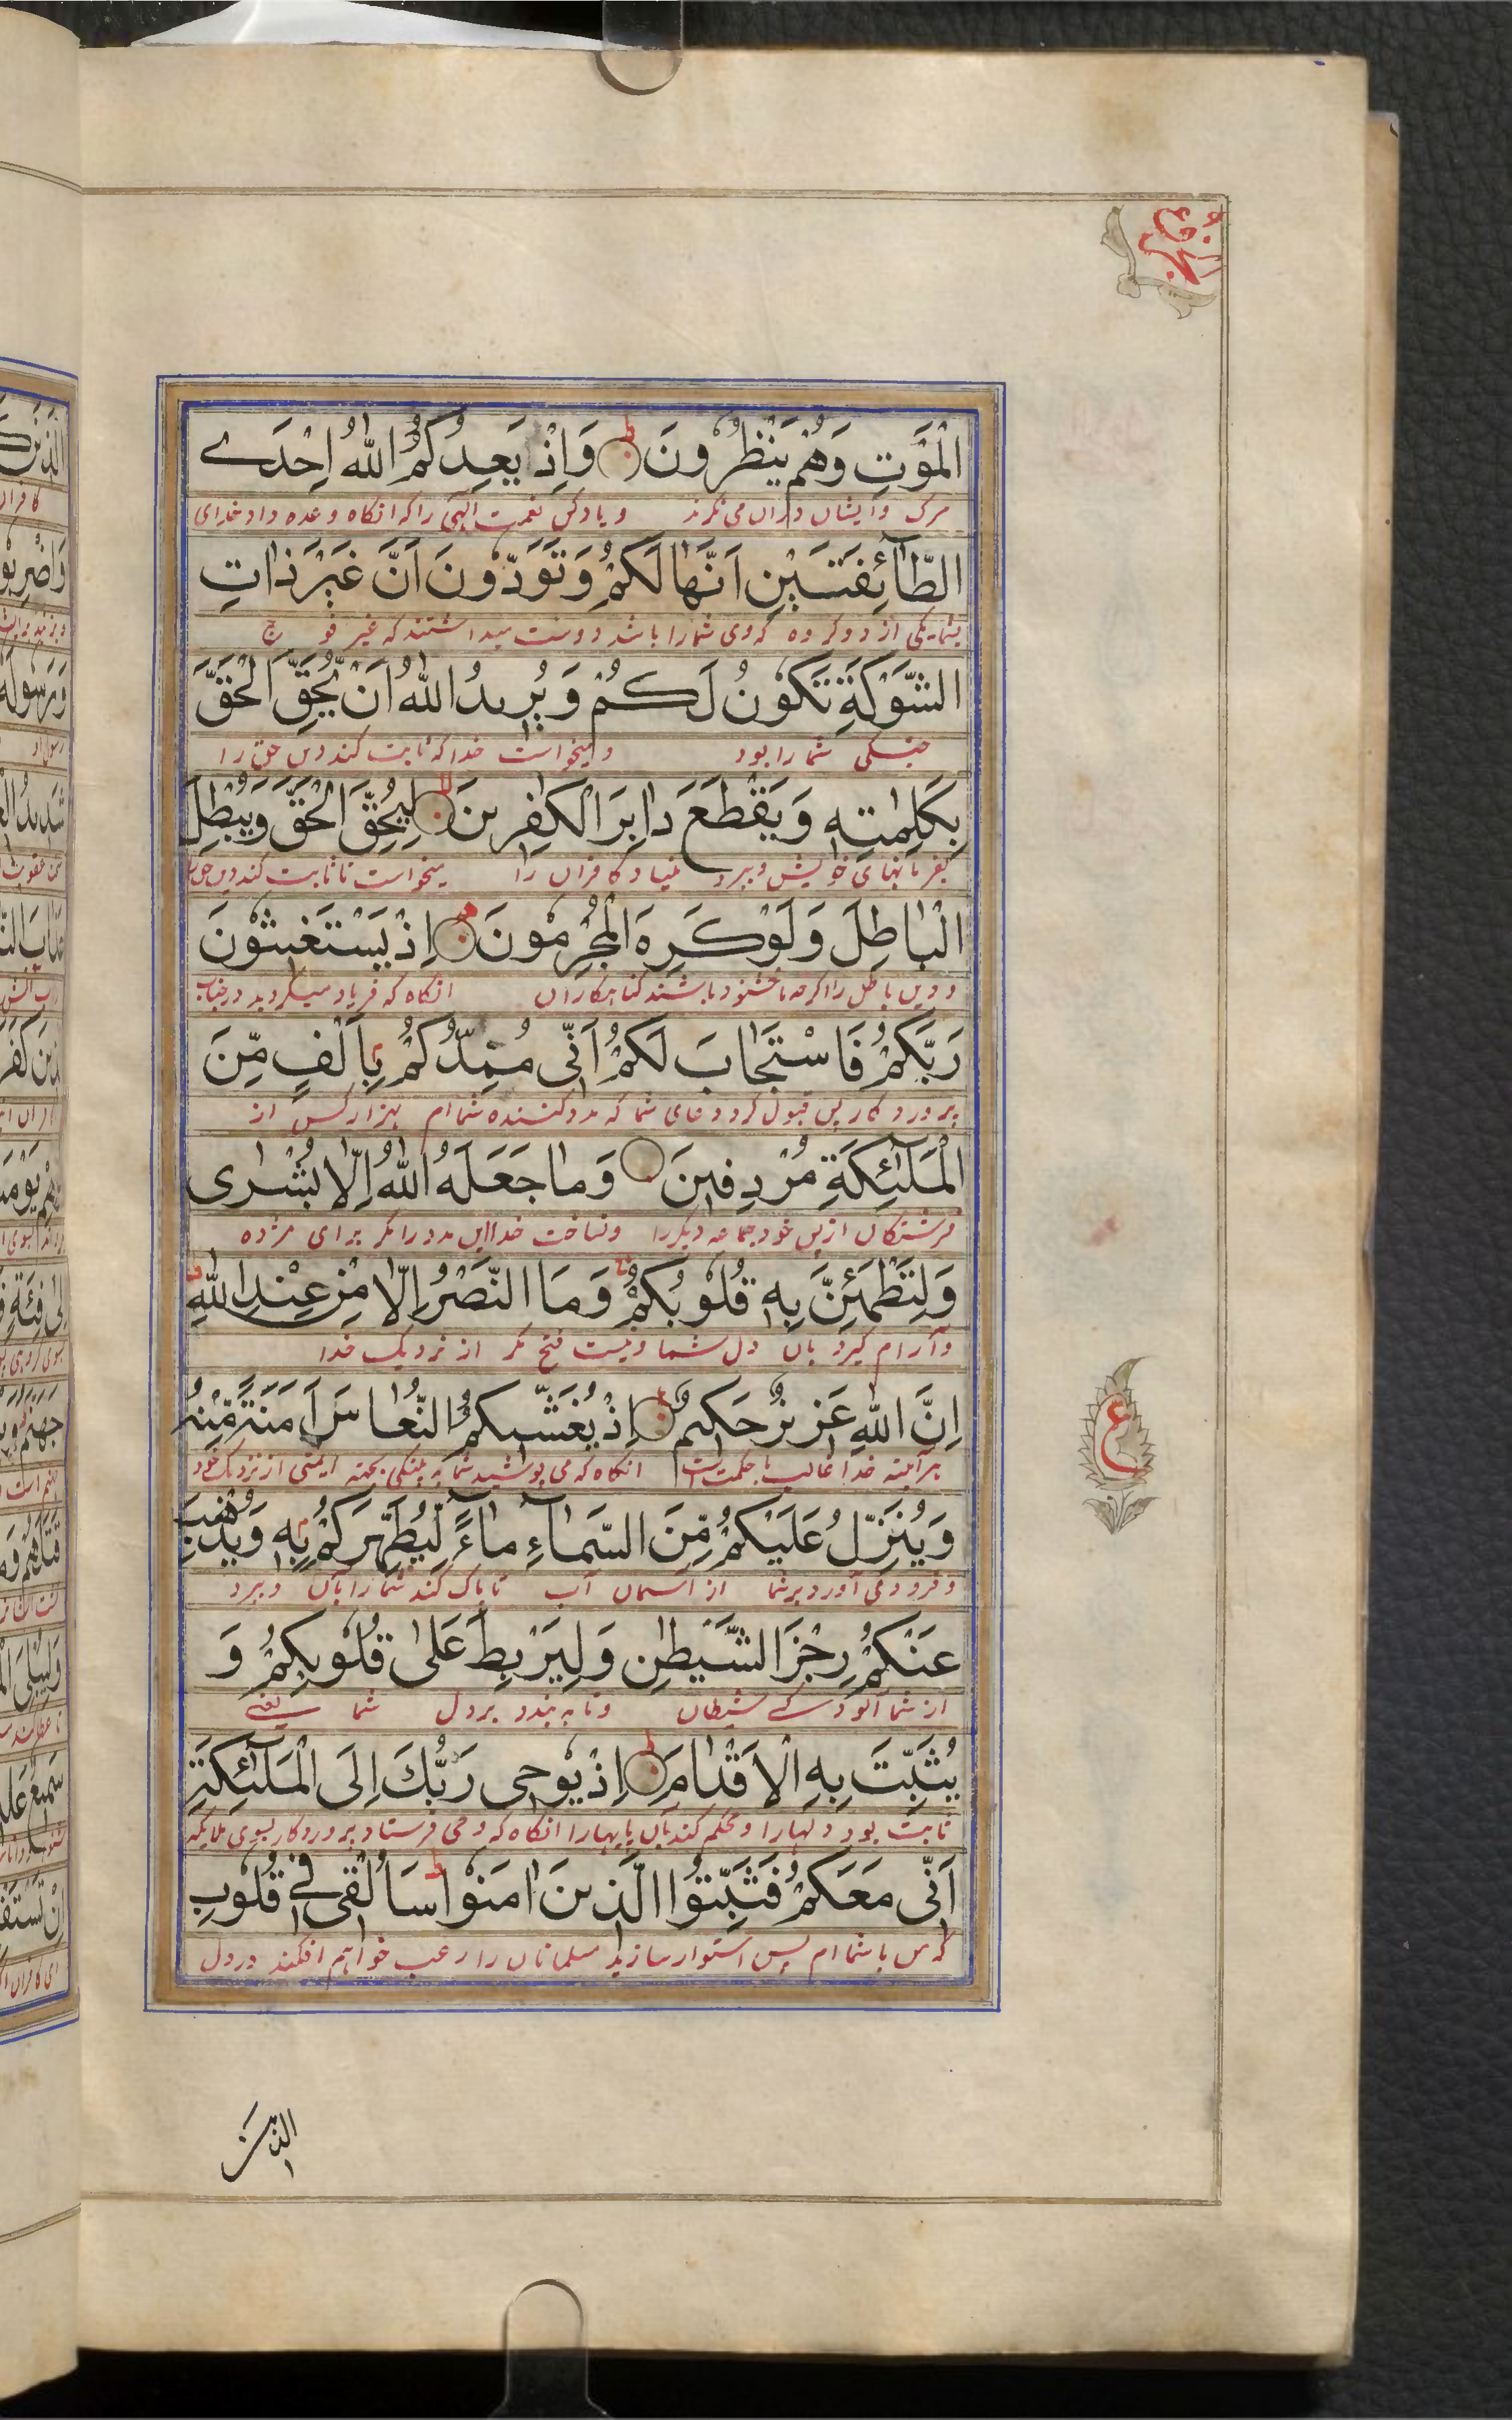 الجزء
الْمَوْتِ وَهُمْ يَنْظُرُونَ ط وَاِذْ يَعِدُكُمُ اللّٰهُ اِحْدَے
مرک وایشان دران می نکرند و یاد کن نعمت الهی را که انکاه وعده داد خدای
الطَّآئِفَتَيْنِ اَنَّهَا لَكُمْ وَتَوَدُّونَ اَنَّ غَيْرَ ذَاتِ
بشما یکی از دو کروه که وی شما را باشد و دوست میداشتند که غیر فوج
الشَّوْكَةِ تَكُونُ لَكُمْ وَيُرِيدُ اللّٰهُ اَنْ يُحِقَّ الْحَقَّ
جنکی شما را بود و میخواست خدا که ثابت کند دین حق را
بِكَلِمٰتِهٖ وَيَقْطَعَ دَابِرَ الْكٰفِرِينَ لا لِيُحِقَّ الْحَقَّ وَيُبْطِلَ
بفرمانهای خویش و ببرد بنیاد کافران را میخواست تا ثابت کند دین حق
الْبَاطِلَ وَلَوْ كَرِهَ الْمُجْرِمُونَ اِذْ تَسْتَغِيثُونَ
و دین باطل را اکرچه ناخشنود باشند کناهکاران انکاه که فریاد میکردید در جناب
رَبَّكُمْ فَاسْتَجَابَ لَكُمْ اَنِّى مُمِدُّكُمْ بِاَلْفٍ مِّنَ
پروردکار پس قبول کرد دعای شما که مدد کننده شما ام بهزار کس از
الْمَلٰٓئِكَةِ مُرْدِفِينَ وَمَا جَعَلَهُ اللّٰهُ اِلَّا بُشْرٰى
فرشتکان از پس خود جماعه دیکر را و نساخت خدا این مدد را مکر برای مژده
وَلِتَطْمَئِنَّ بِهٖ قُلُوبُكُمْ وَمَا النَّصْرُ اِلَّا مِنْ عِنْدِ اللّٰهِ
و آرام کیرد بان دل شما و نیست فتح مکر از نزدیک خدا
اِنَّ اللّٰهَ عَزِيزٌ حَكِيمٌ ع اِذْ يُغَشِّيكُمُ النُّعَاسَ اَمَنَةً مِّنْهُ
هر آینه خدا غالب با حکمت است انکاه که می پوشید شما به پینکی بجهته ایمنی از نزدیک خود
وَيُنَزِّلُ عَلَيْكُمْ مِّنَ السَّمَآءِ مَآءً لِّيُطَهِّرَكُمْ بِهٖ وَيُذْهِبَ
و فرود می آورد بر شما از آسمان آب تا پاک کند شما را بآن و ببرد
عَنْكُمْ رِجْزَ الشَّيْطٰنِ وَلِيَرْبِطَ عَلٰى قُلُوبِكُمْ وَ
از شما آلودکے شیطان و تا به بندد بر دل شما یعنے
يُثَبِّتَ بِهِ الْاَقْدَامَ ط اِذْ يُوحِى رَبُّكَ اِلَى الْمَلٰٓئِكَةِ
ثابت بود دلهارا و محکم کند بآن پایهارا انکاه که وحی فرستاد پروردکار بسوی ملایکه
اَنِّى مَعَكُمْ فَثَبِّتُوا الَّذِينَ اٰمَنُوا ط سَاُلْقِى فِے قُلُوبِ
که من با شما ام پس استوار سازید مسلمانان را رعب خواهم افکند در دل
ع
الذين